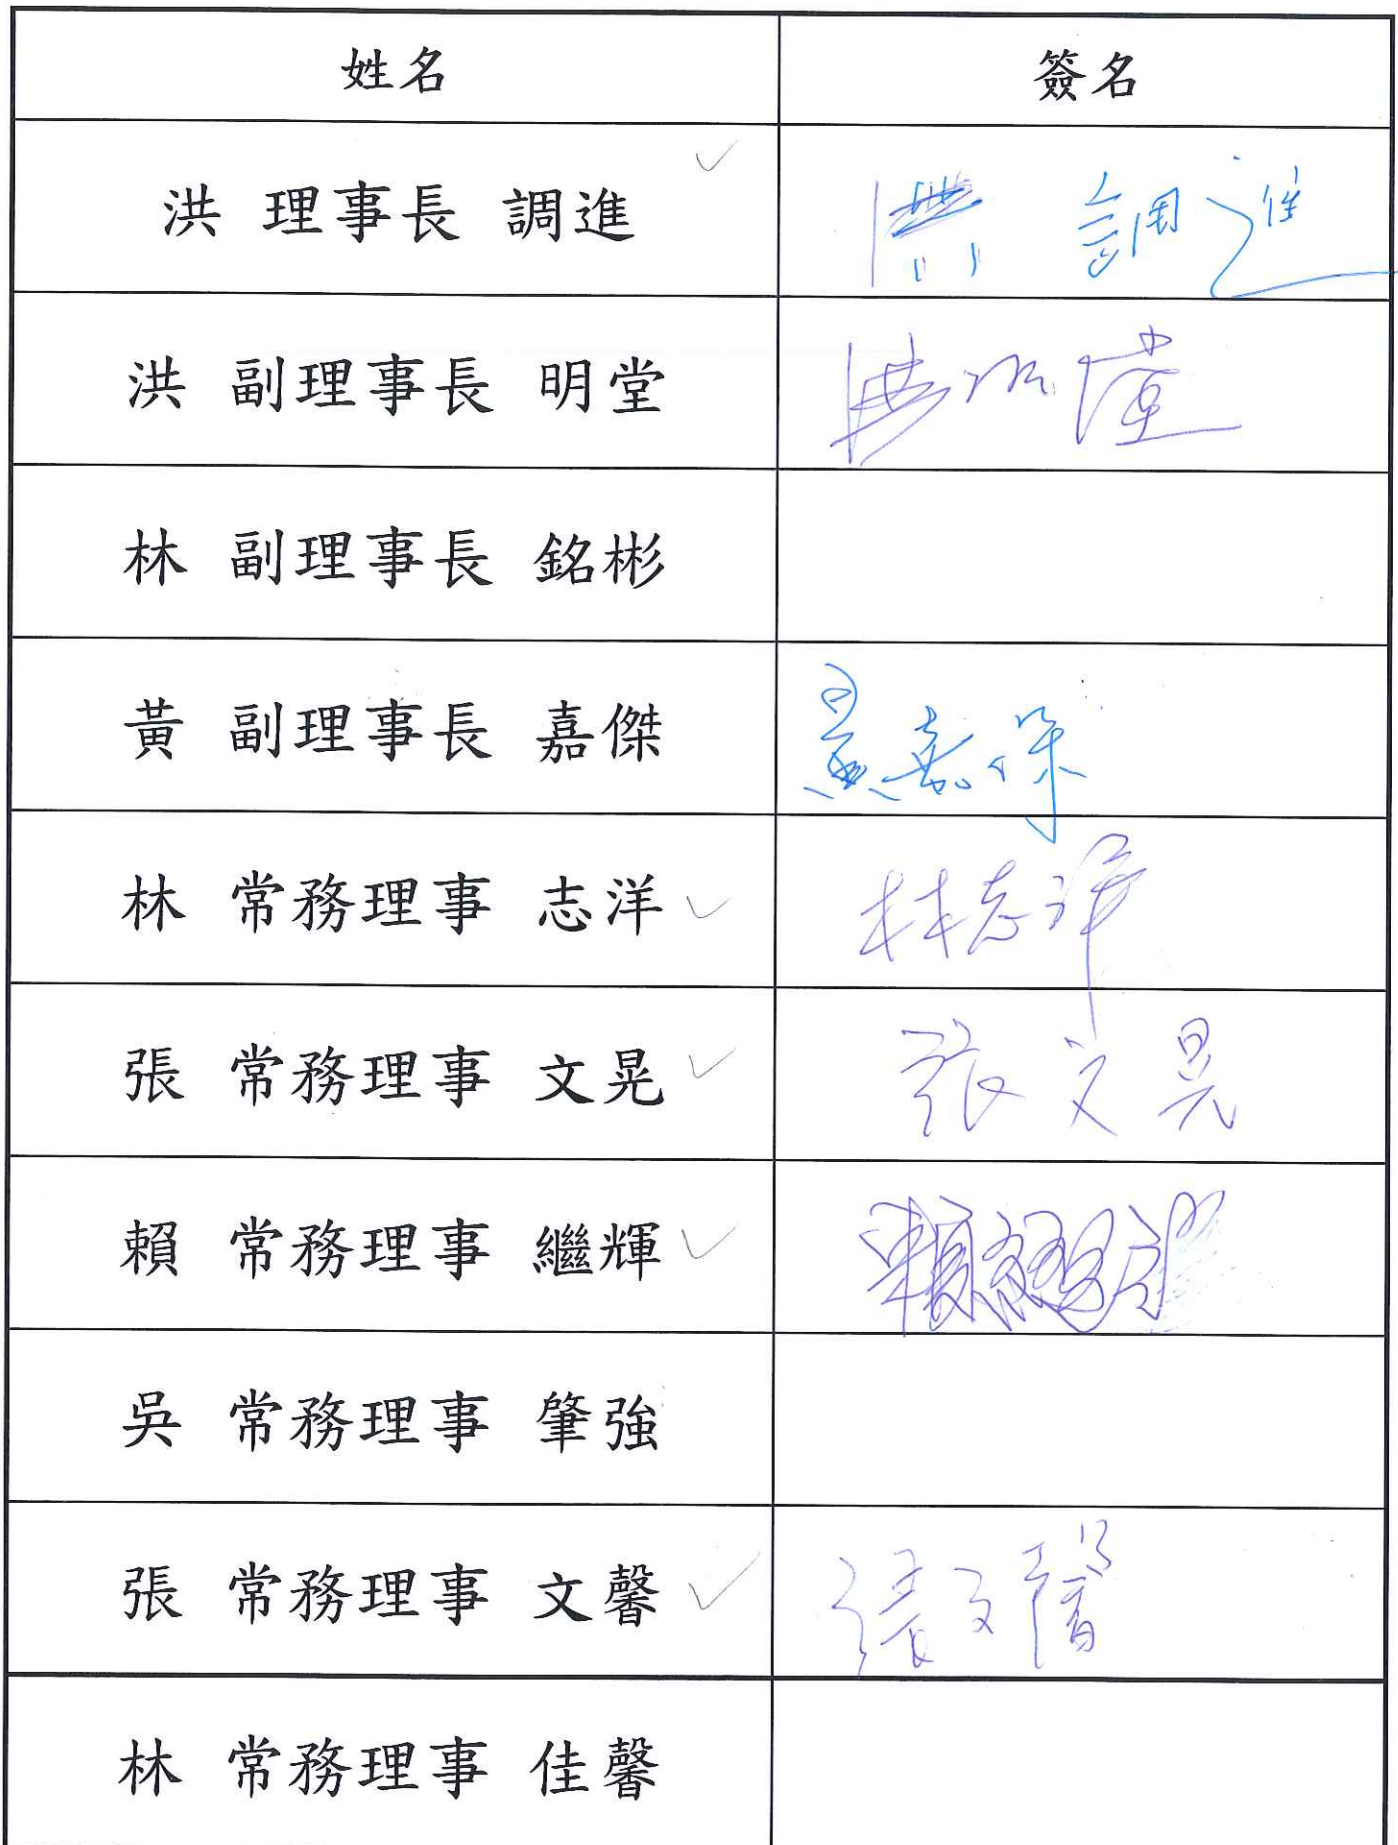 姓名 簽名
洪 理事長 調進 洪 調進
洪 副理事長 明堂
林 副理事長 銘彬
黃 副理事長 嘉傑 黃嘉傑
林 常務理事 志洋 林志洋
張 常務理事 文晃 張文晃
賴 常務理事 繼輝 賴繼輝
吳 常務理事 肇強
張 常務理事 文馨 張文馨
林 常務理事 佳馨